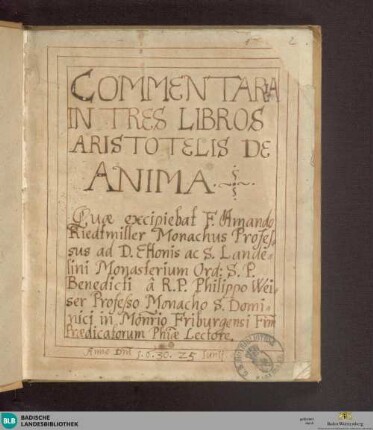 2
COMMENTARIA
IN TRES LIBROS
ARISTOTELIS DE
ANIMA.
Quæ excipiebat F. Amando
Riedtmiller Monachus Profes-
sus ad D. Ettonis ac S. Lande-
lini Monasterium Ord: S. P.
Benedicti â R. P. Philippo Wei
ser Professo Monacho S. Domi-
nici in Mon̄rio Friburgensi
Prædicatorum Phiæ Lectore.
Anno Dñi 1.6.30. 25
BLB BADISCHE
LANDESBIBLIOTHEK
gefördert
durch
Baden-Württemberg